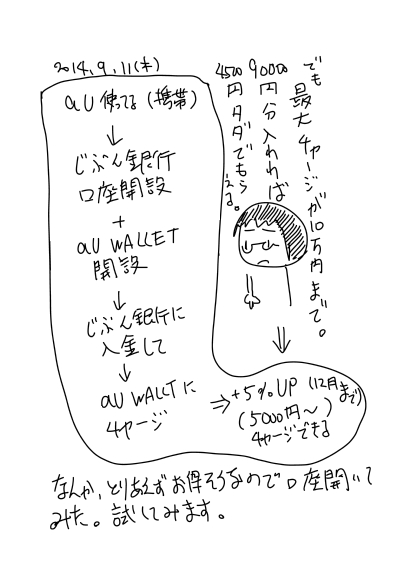 2014.9.11(木)
au使ってる(携帯)
↓
じぶん銀行
口座開設
+
au WALLET
開設
↓
じぶん銀行に
入金して
↓
au WALLTに
チャージ
⇒+5%UP(12月まで)
(5000円〜)
チャージできる
でも
最大チャージが10万円まで。
90000円分入れれば
4500円タダでもらえる。
なんか、とりあえずお得そうなので口座開いて
みた。試してみます。